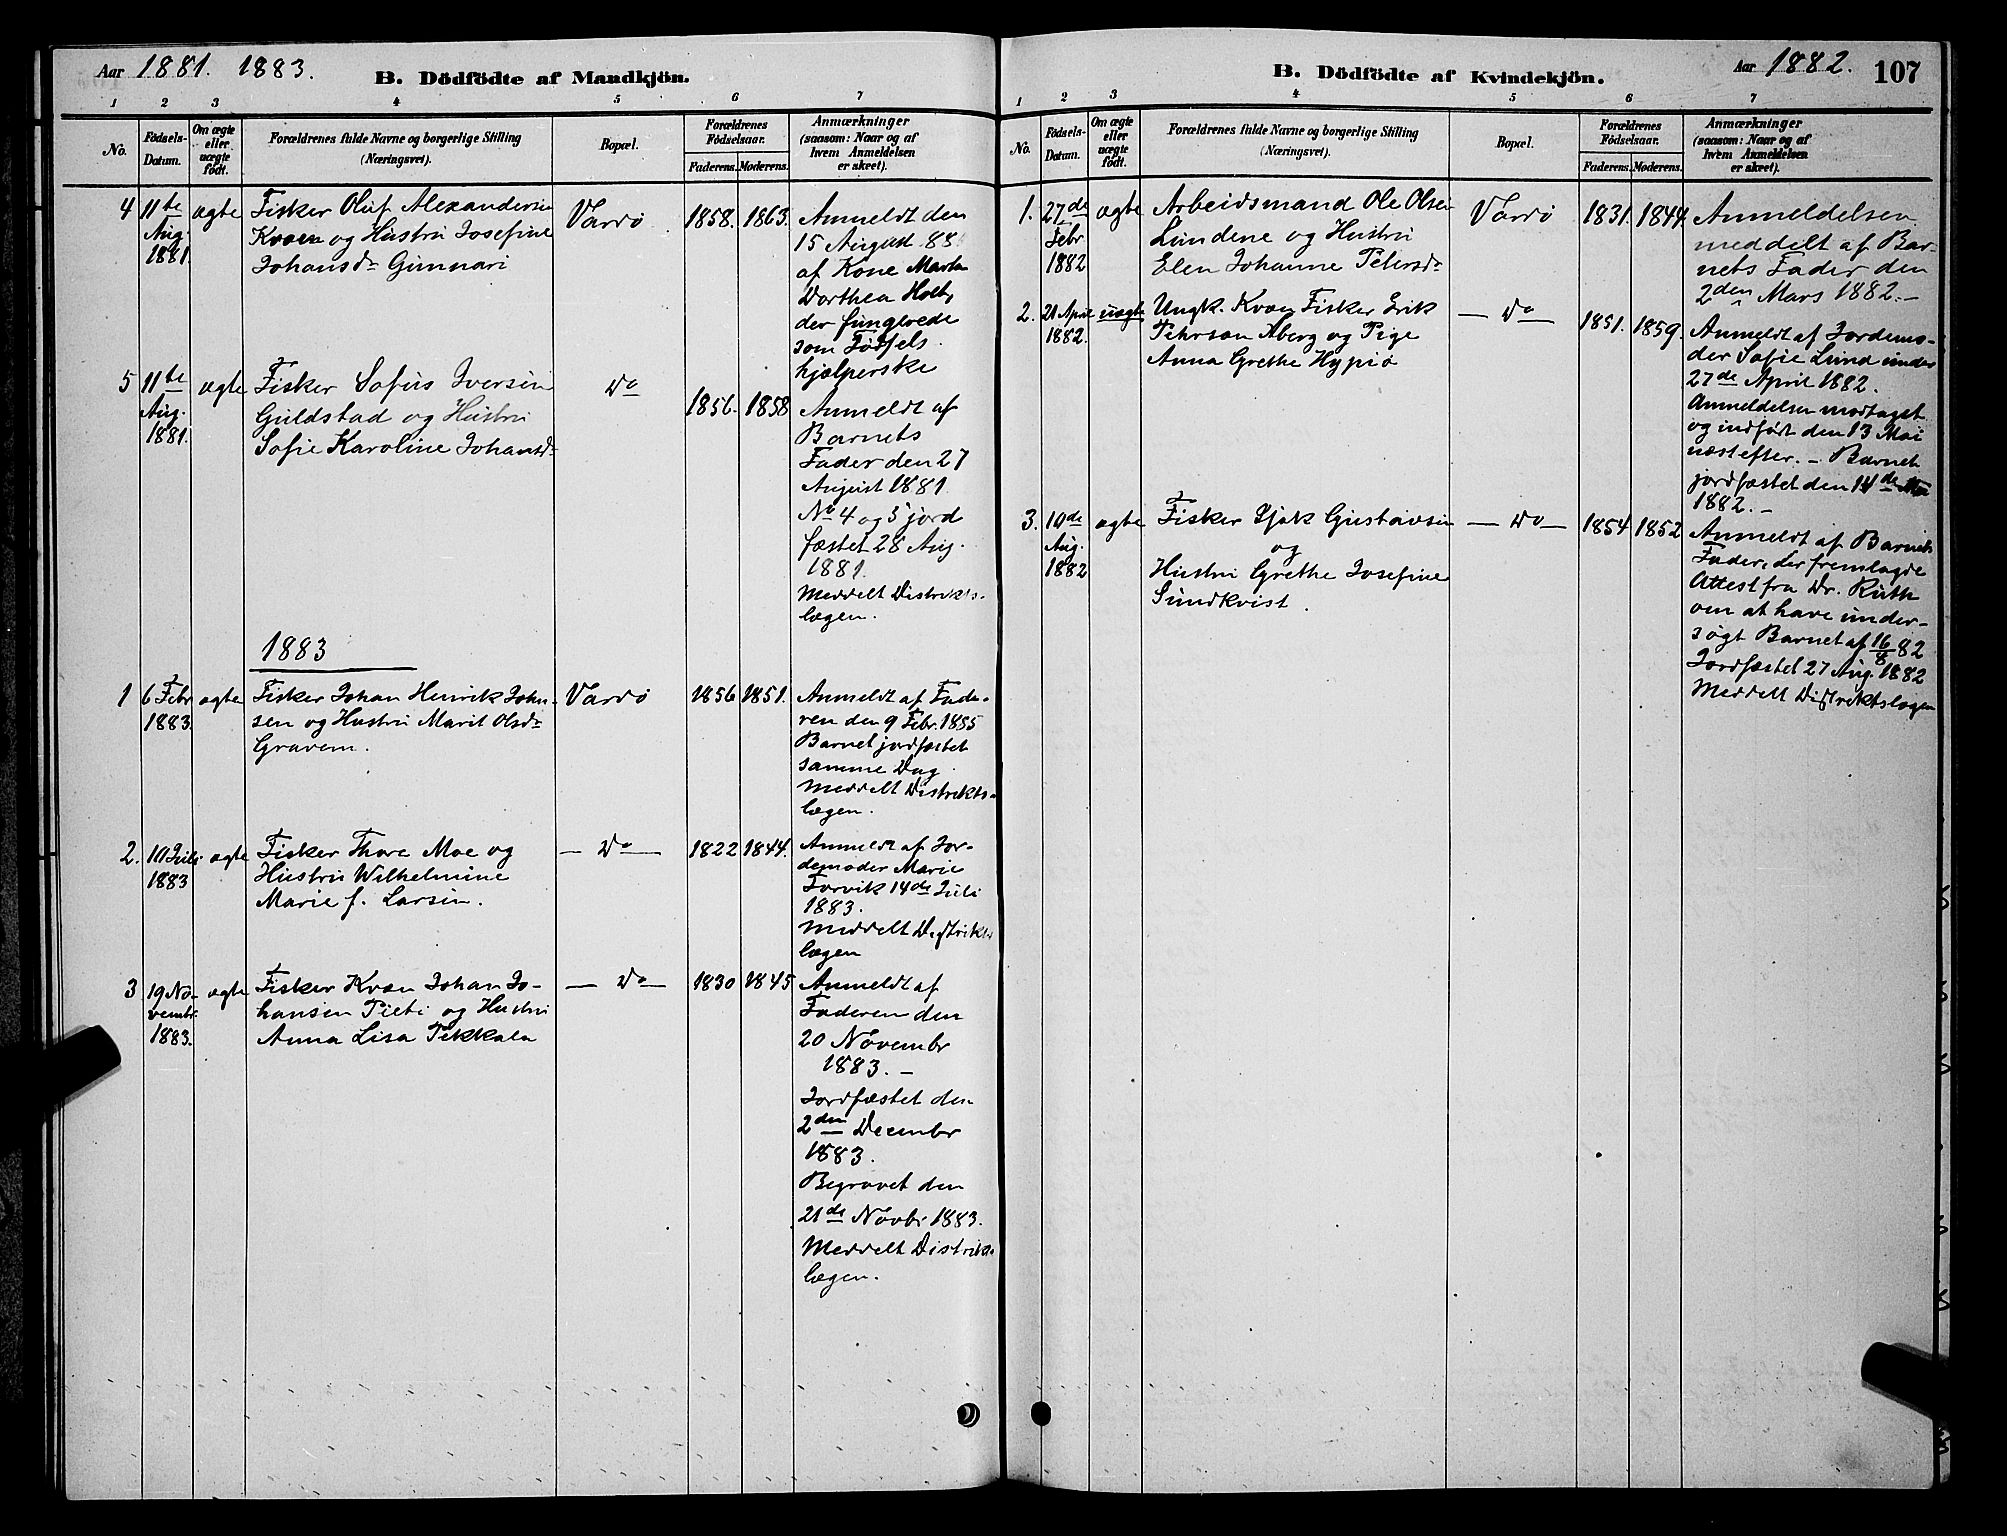 Aar 1881. 1883. B. Dödfödte af Mandkjön.
1 2 3 4 5 6 7
No. Födsels-Datum. Om ægte eller uægte födt. Forældrenes fulde Navne og borgerlige Stilling (Næringsvei). Bopæl. Forældrenes Födselsaar. Faderens. Moderens. Anmærkninger (saasom: Naar og af hvem Anmeldelsen er skeet).
4 11te Aug. 1881. ægte Fisker Oluf Alexandersen
Kvæn og Hustru Josefine
Johansdr Gunnari
Vardø 1858. 1863. Anmeldt den
15 August
af Kone
Dorthea
der fungerede
som Fødsels
hjælperske
5 11te Aug. 1881. ægte Fisker Sofus Iversen
Guldstad og Hustru
Sofie Karoline Johansdr
Do 1856. 1858 Anmeldt af
Barnets
Fader den 27
August 1881.
No 4 og 5 jord
fæstet 28 Aug.
1881.
Meddelt Distrikts-
lægen.
1883
1 6 Febr 1883. ægte Fisker Johan Henrik Johan-
sen og Hustru Marit Olsdr
Gravem.
Vardø 1856 1851. Anmeldt af Fade-
ren den 9 Febr. 1885
Barnet jordfæstet
samme Dag
Meddelt Distrikts-
lægen.
2. 10 Juli 1883 ægte Fisker Thore Moe og
Hustru Wilhelmine
Marie f. Larsen.
— Do — 1822 1844. Anmeldt af Jor-
demoder Marie
Forvik 14de Juli
1883.
Meddelt Distrikts
lægen
3 19 Novembr. 1883. ægte Fisker Kvæn Johan Jo-
hansen Pieti og Hustru
Anna Lisa Pekkala
— Do — 1830 1845 Anmeldt af
Faderen den
20 Novembr
1883. —
Jordfæstet den
2den Decembr
1883.
Begravet den
21de Novbr 1883.
Meddelt Distrikts
lægen.
B. Dödfödte af Kvindekjön. Aar 1882. 107
1 2 3 4 5 6 7
No. Födsels-Datum. Om ægte eller uægte födt. Forældrenes fulde Navne og borgerlige Stilling (Næringsvei). Bopæl. Forældrenes Födselsaar. Faderens. Moderens. Anmærkninger (saasom: Naar og af hvem Anmeldelsen er skeet).
1. 27de Febr 1882 ægte Arbeidsmand Ole Olsen
Lundene og Hustru
Elen Johanne Petersdr
Vardø 1831. 1844. Anmeldelsen
meddelt af Bar-
nets Fader den
2den Mars 1882. —
2. 21 April 1882. uægte Ungk. Kvæn Fisker Erik
Pehrson Aberg og Pige
Anna Grethe Hypiø
— Do — 1851. 1859. Anmeldt af Jordemo-
der Sofie Lund under
27de April 1882.
Anmeldelsen modtaget
og indført den 13 Mai
næstefter. — Barnet
jordfæstet den 14de Mai
1882. —
3. 10de Aug. 1882 ægte Fisker Isjak Gustavsen
og
Hustru Grethe Josefine
Sundkvist.
— Do — 1854 1852 Anmeldt af Barnets
Fader, der fremlagde
Attest fra Dr. Ruth
om at have under-
søgt Barnet af 16/8 82
Jordfæstet 27 Aug. 1882
Meddelt Distriktslægen